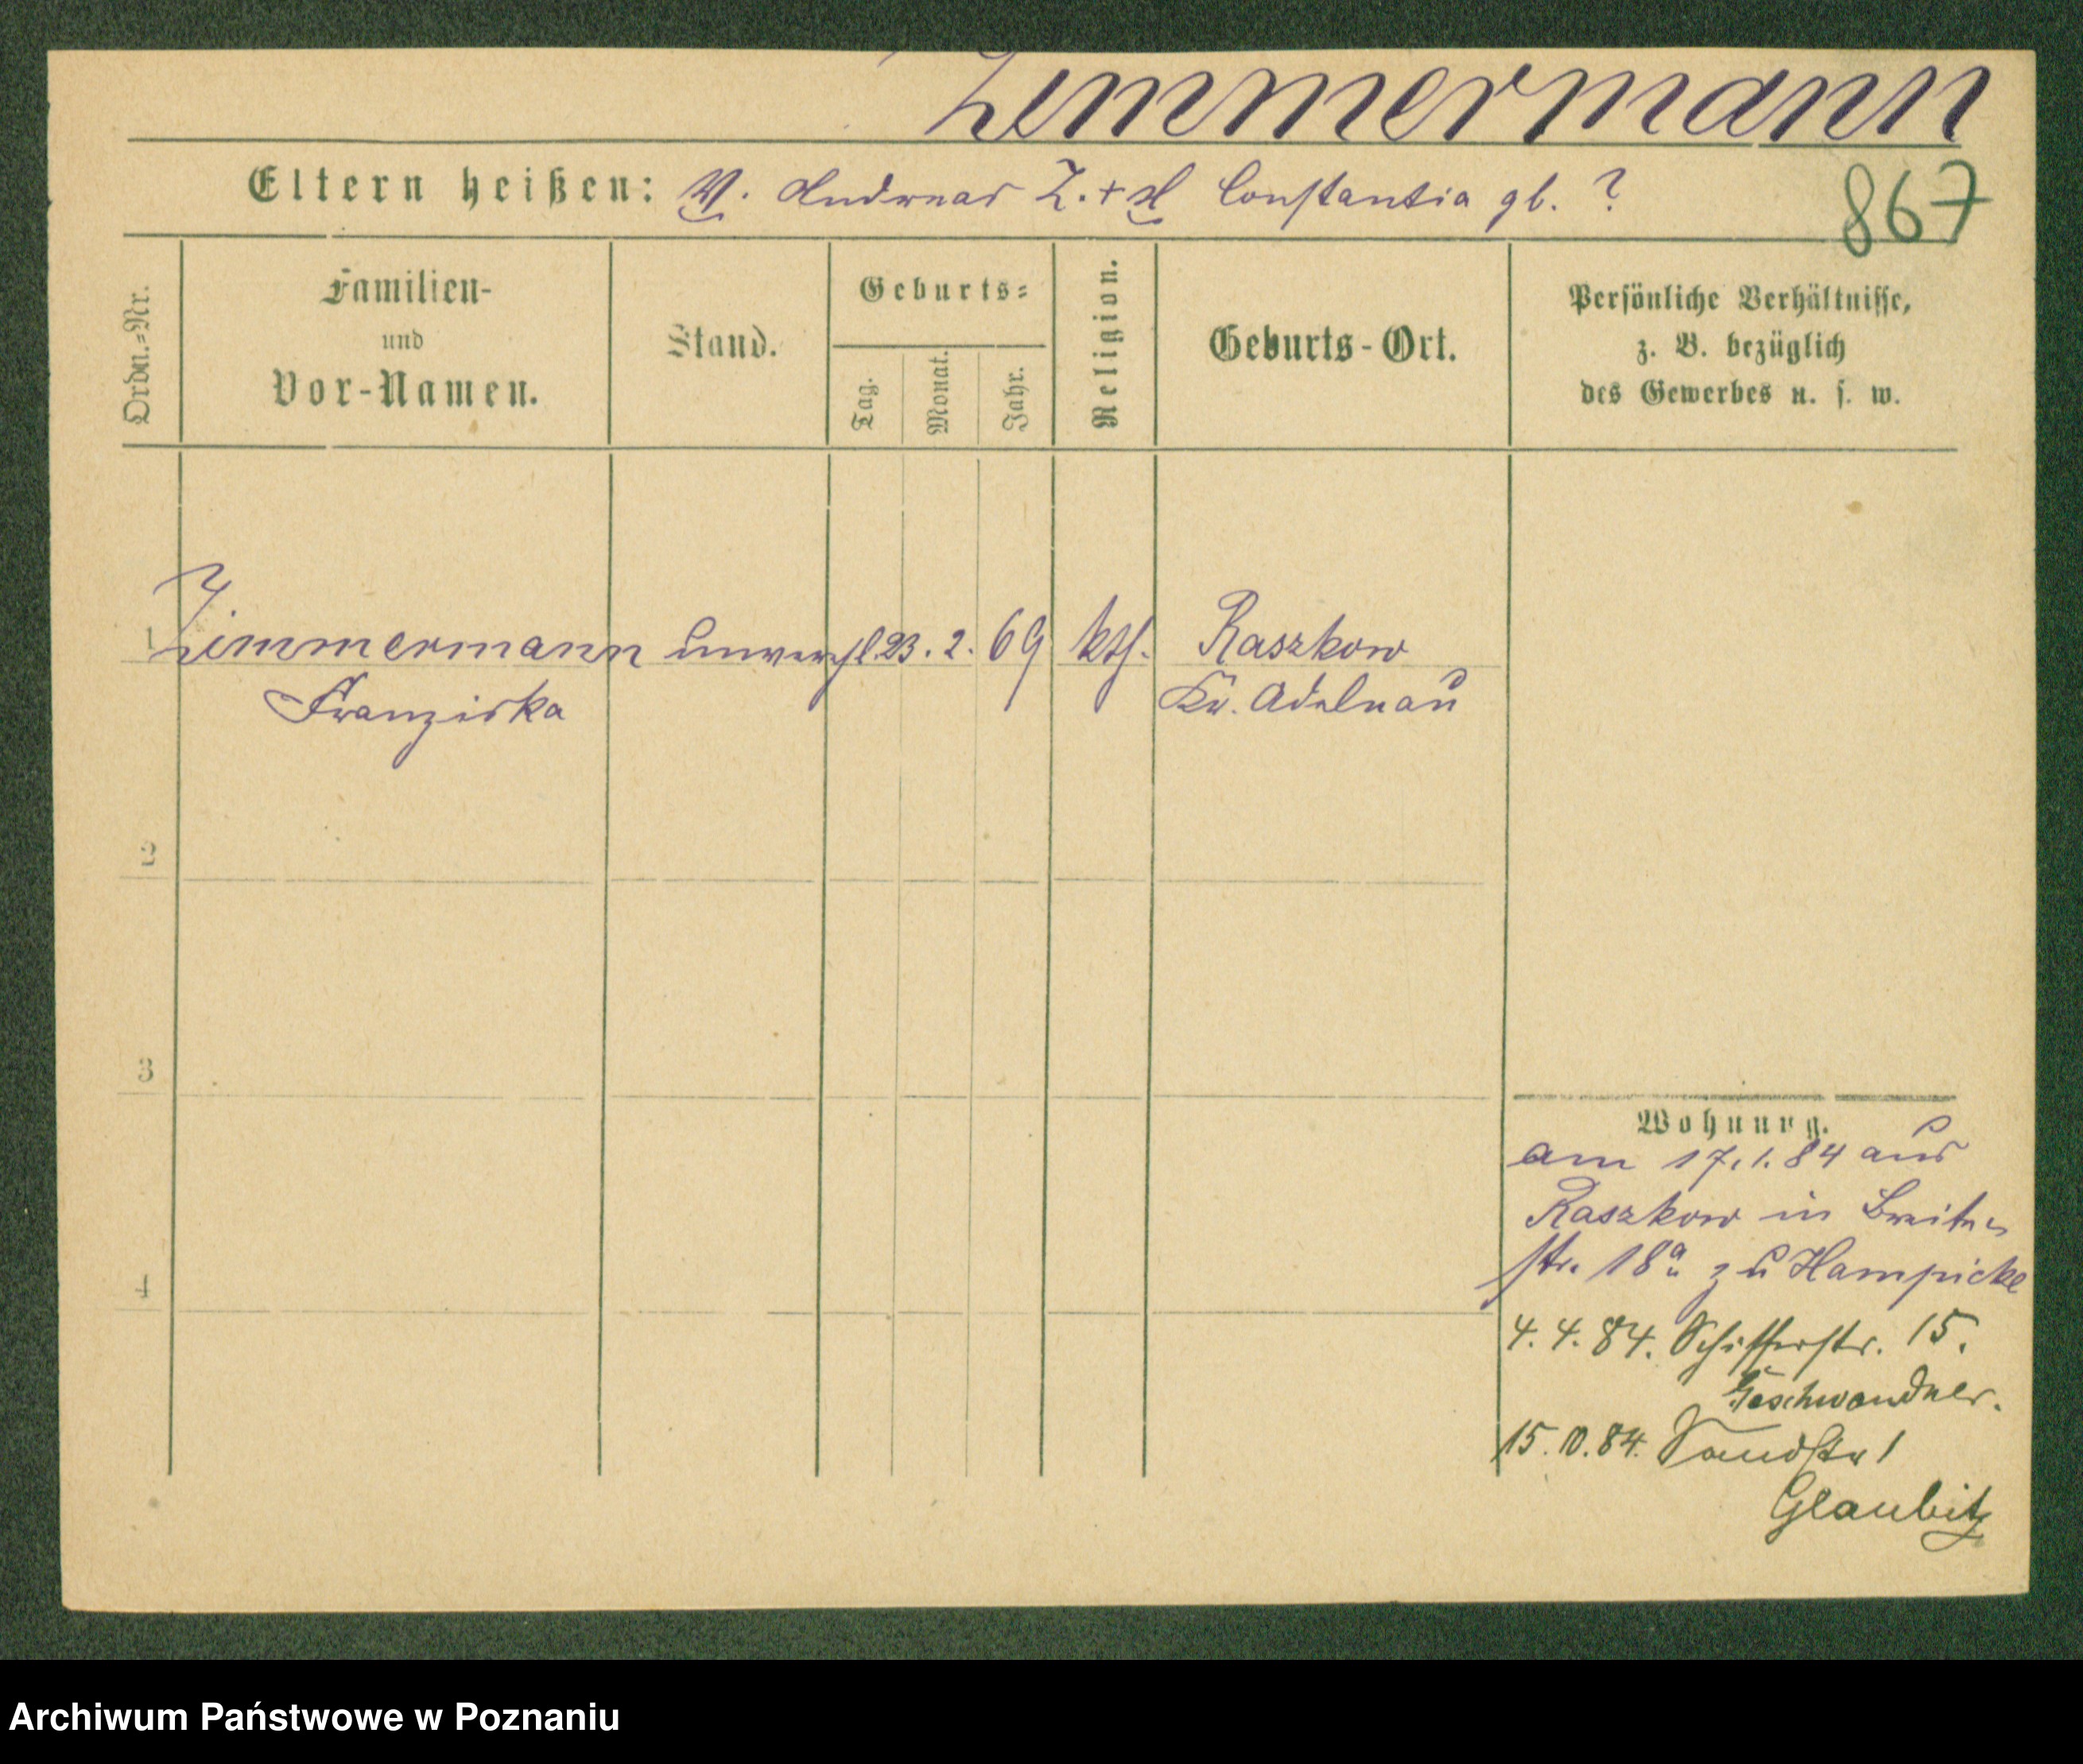 Zimmermann
867
Eltern heißen: V. Andreas Z. + M Constantia gb. ?
Ordn.=Nr.
Familien-
und
Vor-Namen.
Stand.
Geburts=
Tag.
Monat.
Jahr.
Religion.
Geburts-Ort.
Persönliche Verhältnisse,
z. B. bezüglich
des Gewerbes u. s. w.
1 Zimmermann unverehl. 23. 2. 69 kth. Raszkow
Franziska Kr. Adelnau
2
3
4
Wohnung.
am 17.1.84 aus
Raszkow in Breite-
str. 18a zu Hampicke
4. 4. 84. Schifferstr. 15.
Geschwandner.
15. 10. 84. Sandstr 1
Glaubitz
Archiwum Państwowe w Poznaniu